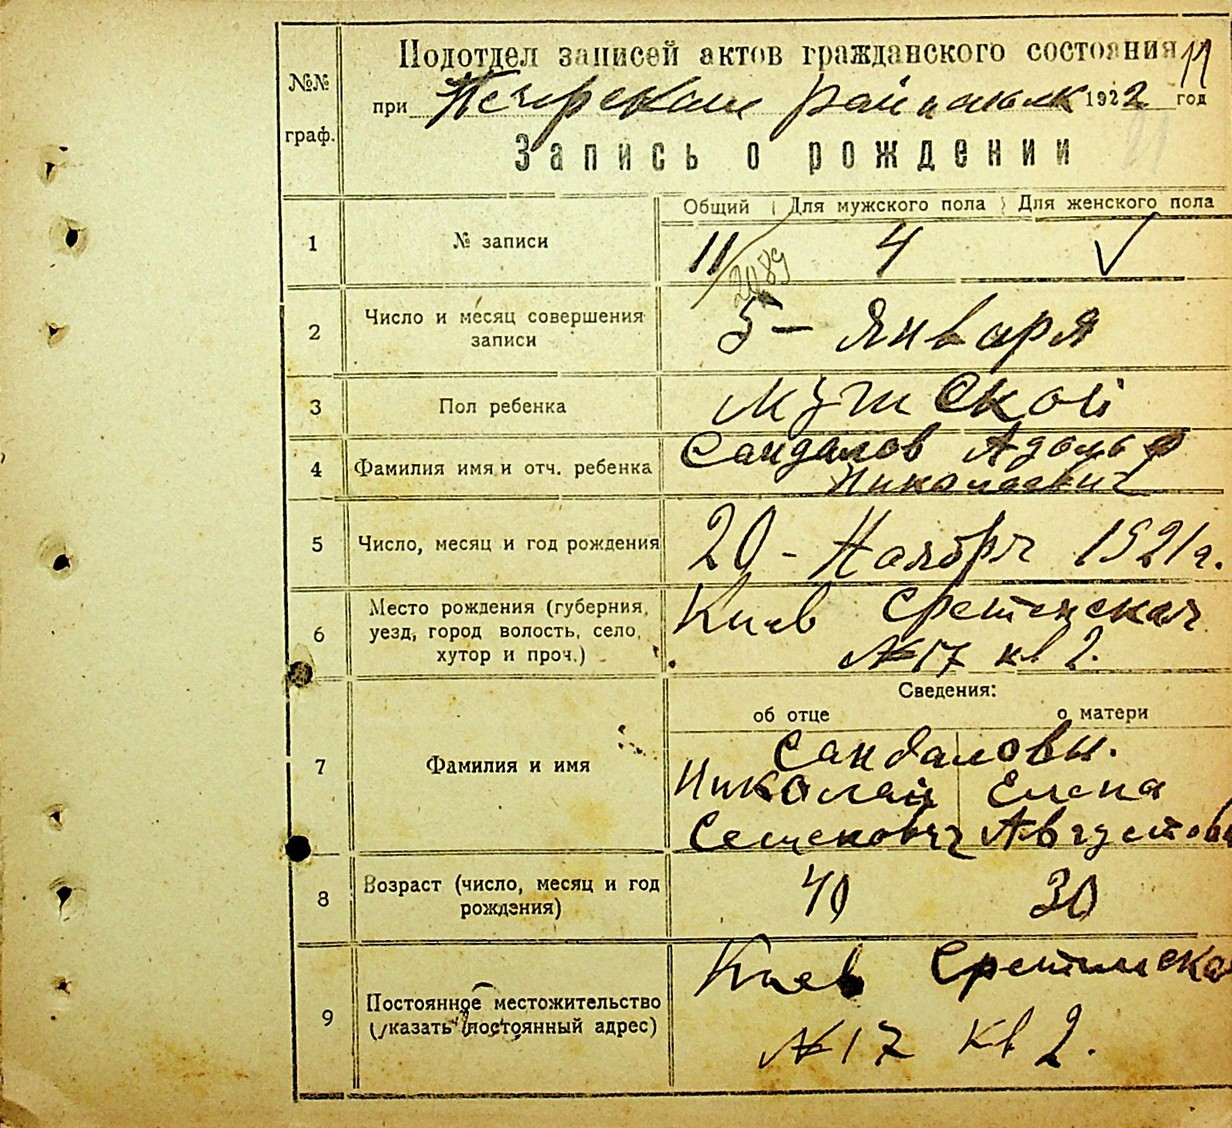 Подотдел записей актов гражданского состояния 11
№№ граф.
при Печерском 1922 год
Запись о рождении
Общий Для мужского пола Для женского пола
1 № записи 11 4
2089
2 Число и месяц совершения записи
5 – Января
3 Пол ребенка Мужской
4 Фамилия имя и отч. ребенка Сандалов Адольф
Николаевич
5 Число, месяц и год рождения 20 – Ноября 1921 г.
6 Место рождения (губерния, уезд, город волость, село, хутор и проч.)
Киев Сретенская
№ 17 кв 2.
Сведения:
об отце о матери
7 Фамилия и имя
Сандаловы.
Николай Елена
Семенович Августовн
8 Возраст (число, месяц и год рождения)
40 30
9 Постоянное местожительство (указать постоянный адрес)
Киев Сретинска
№ 17 кв 2.